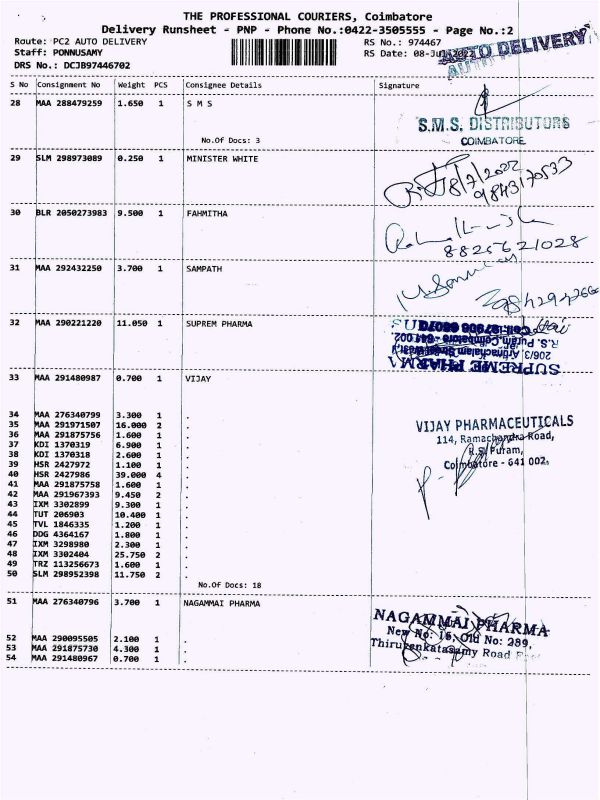 THE PROFESSIONAL COURIERS, Coimbatore
Delivery Runsheet - PNP - Phone No.:0422-3505555 - Page No.:2
Route: PC2 AUTO DELIVERY RS No.: 974467
Staff: PONNUSAMY RS Date: 08-Jul-2022
AUTO DELIVERY
AUTO DELIVERY
DRS No.: DCJB97446702
S No Consignment No Weight PCS Consignee Details Signature
28 MAA 288479259 1.650 1 S M S
S.M.S. DISTRIBUTORS
COIMBATORE
No.Of Docs: 3
29 SLM 298973089 0.250 1 MINISTER WHITE
8/7/2022
9843170533
30 BLR 2050273983 9.500 1 FAHMITHA
8825621028
31 MAA 292432250 3.700 1 SAMPATH
32 MAA 290221220 11.050 1 SUPREM PHARMA
SUPREME PHARMA
R.S. Puram, Coimbatore - 641 002.
33 MAA 291480987 0.700 1 VIJAY
VIJAY PHARMACEUTICALS
114, Ramachandra Road,
R.S. Puram,
Coimbatore - 641 002.
34 MAA 276340799 3.300 1 .
35 MAA 291971507 16.000 2 .
36 MAA 291875756 1.600 1 .
37 KDI 1370319 6.900 1 .
38 KDI 1370318 2.600 1 .
39 HSR 2427972 1.100 1 .
40 HSR 2427986 39.000 4 .
41 MAA 291875758 1.600 1 .
42 MAA 291967393 9.450 2 .
43 IXM 3302899 9.300 1 .
44 TUT 206903 10.400 1 .
45 TVL 1846335 1.200 1 .
46 DDG 4364167 1.800 1 .
47 IXM 3298980 2.300 1 .
48 IXM 3302404 25.750 2 .
49 TRZ 113256673 1.600 1 .
50 SLM 298952398 11.750 2 .
No.Of Docs: 18
51 MAA 276340796 3.700 1 NAGAMMAI PHARMA
NAGAMMAI PHARMA
New No: 16, Old No: 289,
Thiruvenkatasamy Road
52 MAA 290095505 2.100 1 .
53 MAA 291875730 4.300 1 .
54 MAA 291480967 0.700 1 .